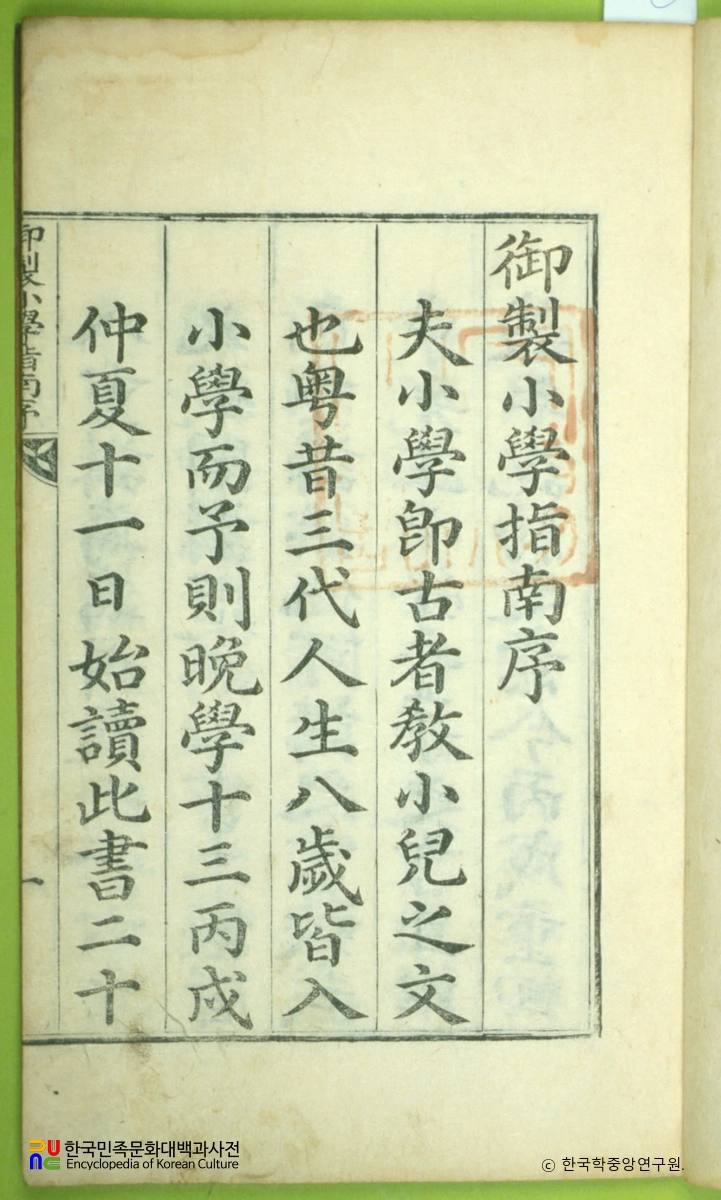 御製小學指南序
夫小學卽古者敎小兒之文
也粤昔三代人生八歲皆入
小學而予則晚學十三丙戌
仲夏十一日始讀此書二十
御製小學指南序
一
한국민족문화대백과사전
Encyclopedia of Korean Culture
ⓒ 한국학중앙연구원.